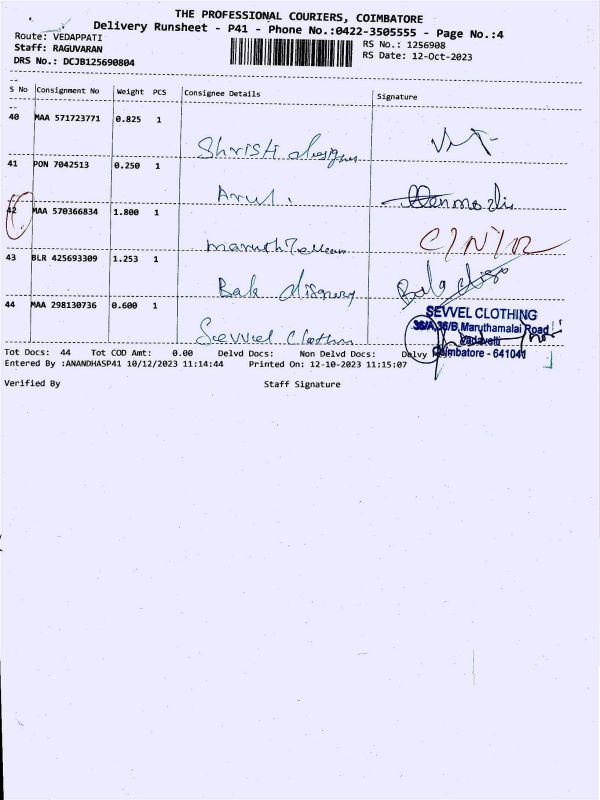 THE PROFESSIONAL COURIERS, COIMBATORE
Delivery Runsheet - P41 - Phone No.:0422-3505555 - Page No.:4
Route: VEDAPPATI
RS No.: 1256908
Staff: RAGUVARAN
RS Date: 12-Oct-2023
DRS No.: DCJB125690804
S No Consignment No Weight PCS Consignee Details Signature
40 MAA 571723771 0.825 1
Shristi
41 PON 7042513 0.250 1
Arul.
42 MAA 570366834 1.800 1
43 BLR 425693309 1.253 1
44 MAA 298130736 0.600 1
SEVVEL CLOTHING
36/A,36/B,Maruthamalai Road
Vadavalli
Coimbatore - 641041
Sevvel Clothing
Tot Docs: 44 Tot COD Amt: 0.00 Delvd Docs: Non Delvd Docs: Delvy
Entered By :ANANDHASP41 10/12/2023 11:14:44 Printed On: 12-10-2023 11:15:07
Verified By Staff Signature